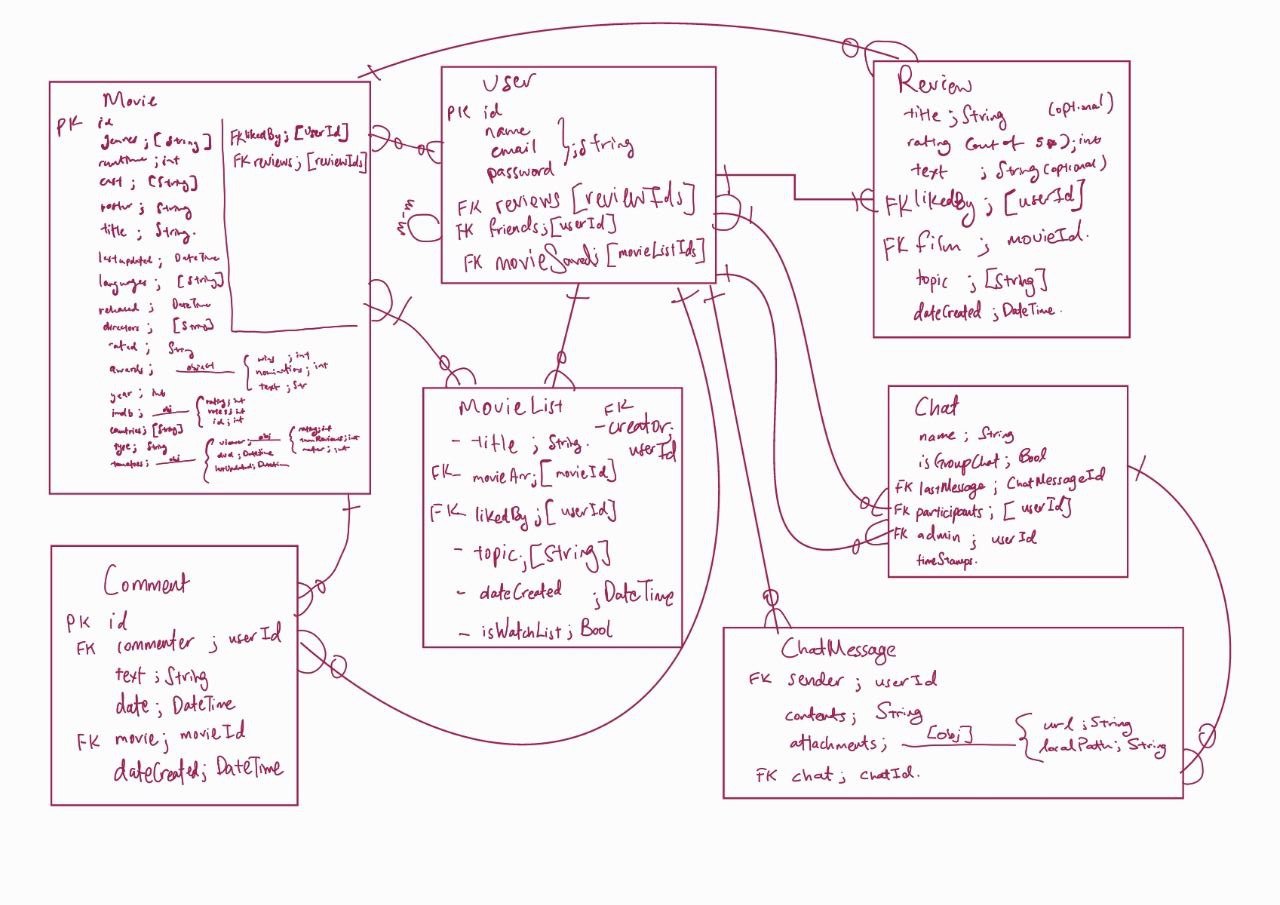 Movie
PK id
genres ; [String]
runtime ; int
cast ; [String]
poster ; String
title ; String.
lastupdated ; DateTime
languages ; [String]
released ; DateTime
directors ; [String]
rated ; String
awards ; object
wins ; int
nominations ; int
text ; Str
year ; int
imdb ; obj
rating ; int
votes ; int
id ; int
countries ; [String]
type ; String
tomatoes ; obj
viewer ; obj
rating ; int
numReviews ; int
meter ; int
dvd ; DateTime
lastUpdated ; DateTime
FK likedBy ; [userId]
FK reviews ; [reviewIds]
User
PK id
name
email
password
; String
FK reviews [reviewIds]
FK friends ; [userId]
FK movieSaved ; [movieListIds]
Review
title ; String (optional)
rating (out of 5) ; int
text ; String (optional)
FK likedBy ; [userId]
FK film ; movieId.
topic ; [String]
dateCreated ; DateTime.
MovieList
FK
- creator ;
userId
- title ; String.
FK - movieArr ; [movieId]
FK - likedBy ; [userId]
- topic ; [String]
- dateCreated ; DateTime
- isWatchList ; Bool
Chat
name ; String
isGroupChat ; Bool
FK lastMessage ; ChatMessageId
FK participants ; [userId]
FK admin ; userId
timeStamps.
Comment
PK id
FK commenter ; userId
text ; String
date ; DateTime
FK movie ; movieId
dateCreated ; DateTime
ChatMessage
FK sender ; userId
contents ; String
attachments ; [obj]
url ; String
localPath ; String
FK chat ; chatId.